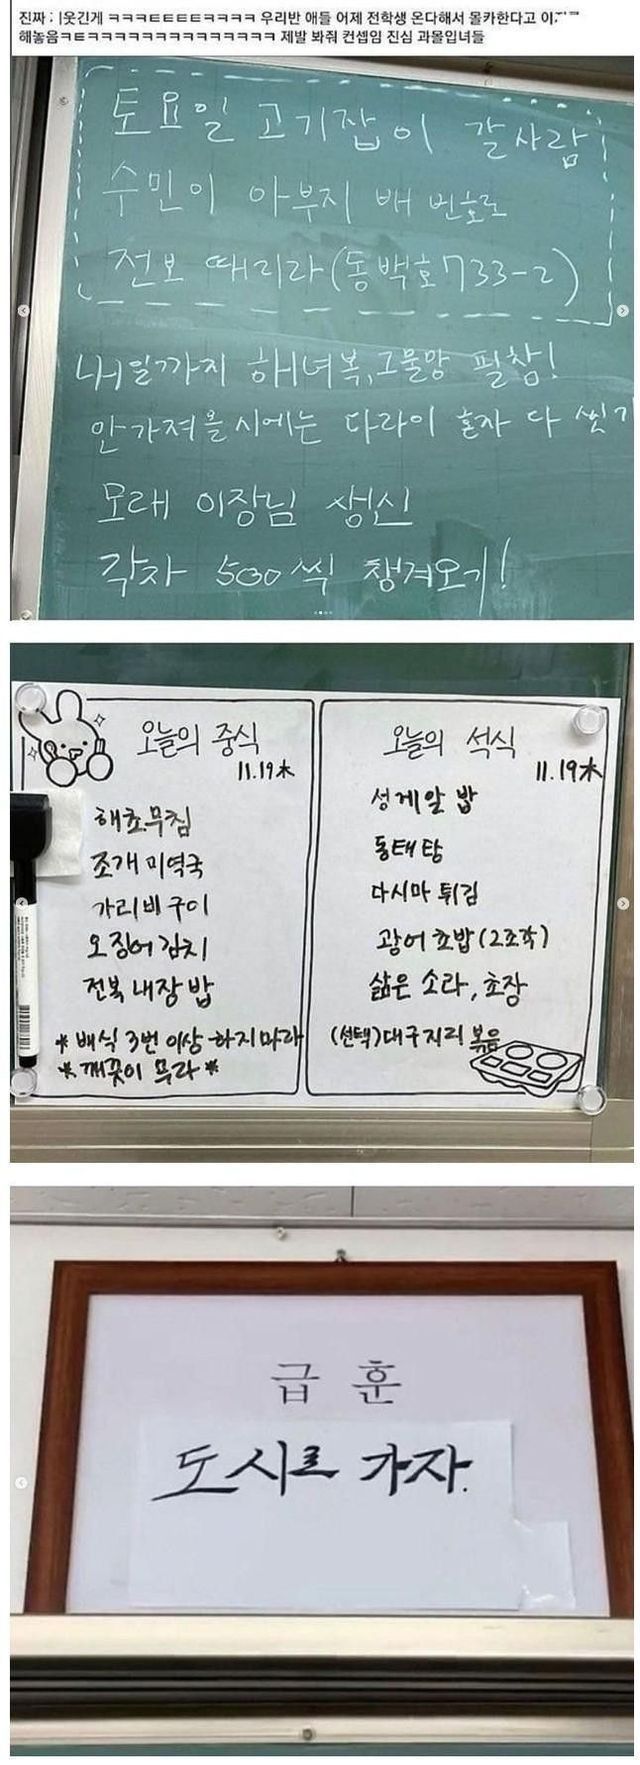 진짜 웃긴게 ㅋㅋㅋㅌㅌㅌㅌㅋㅋㅋㅋ 우리반 애들 어제 전학생 온다해서 몰카한다고
해놓음ㅋㅌㅋㅋㅋㅋㅋㅋㅋㅋㅋㅋㅋㅋㅋㅋ 제발 봐줘 컨셉임 진심 과몰입녀들
토요일 고기잡이 갈사람
수민이 아부지 배 번호로
전보 때리라(동백호733-2)
내일까지 해녀복,그물망 필참!
안가져올시에는 다라이 혼자 다 씻기
모레 이장님 생신
각자 500씩 챙겨오기!
오늘의 중식
11.19木
해초무침
조개 미역국
가리비구이
오징어김치
전복 내장 밥
*배식 3번 이상 하지마라
*깨끗이 무라*
오늘의 석식
11.19木
성게알 밥
동태탕
다시마 튀김
광어초밥(2조각)
삶은 소라, 초장
(선택)대구지리 볶음
급 훈
도시로 가자.